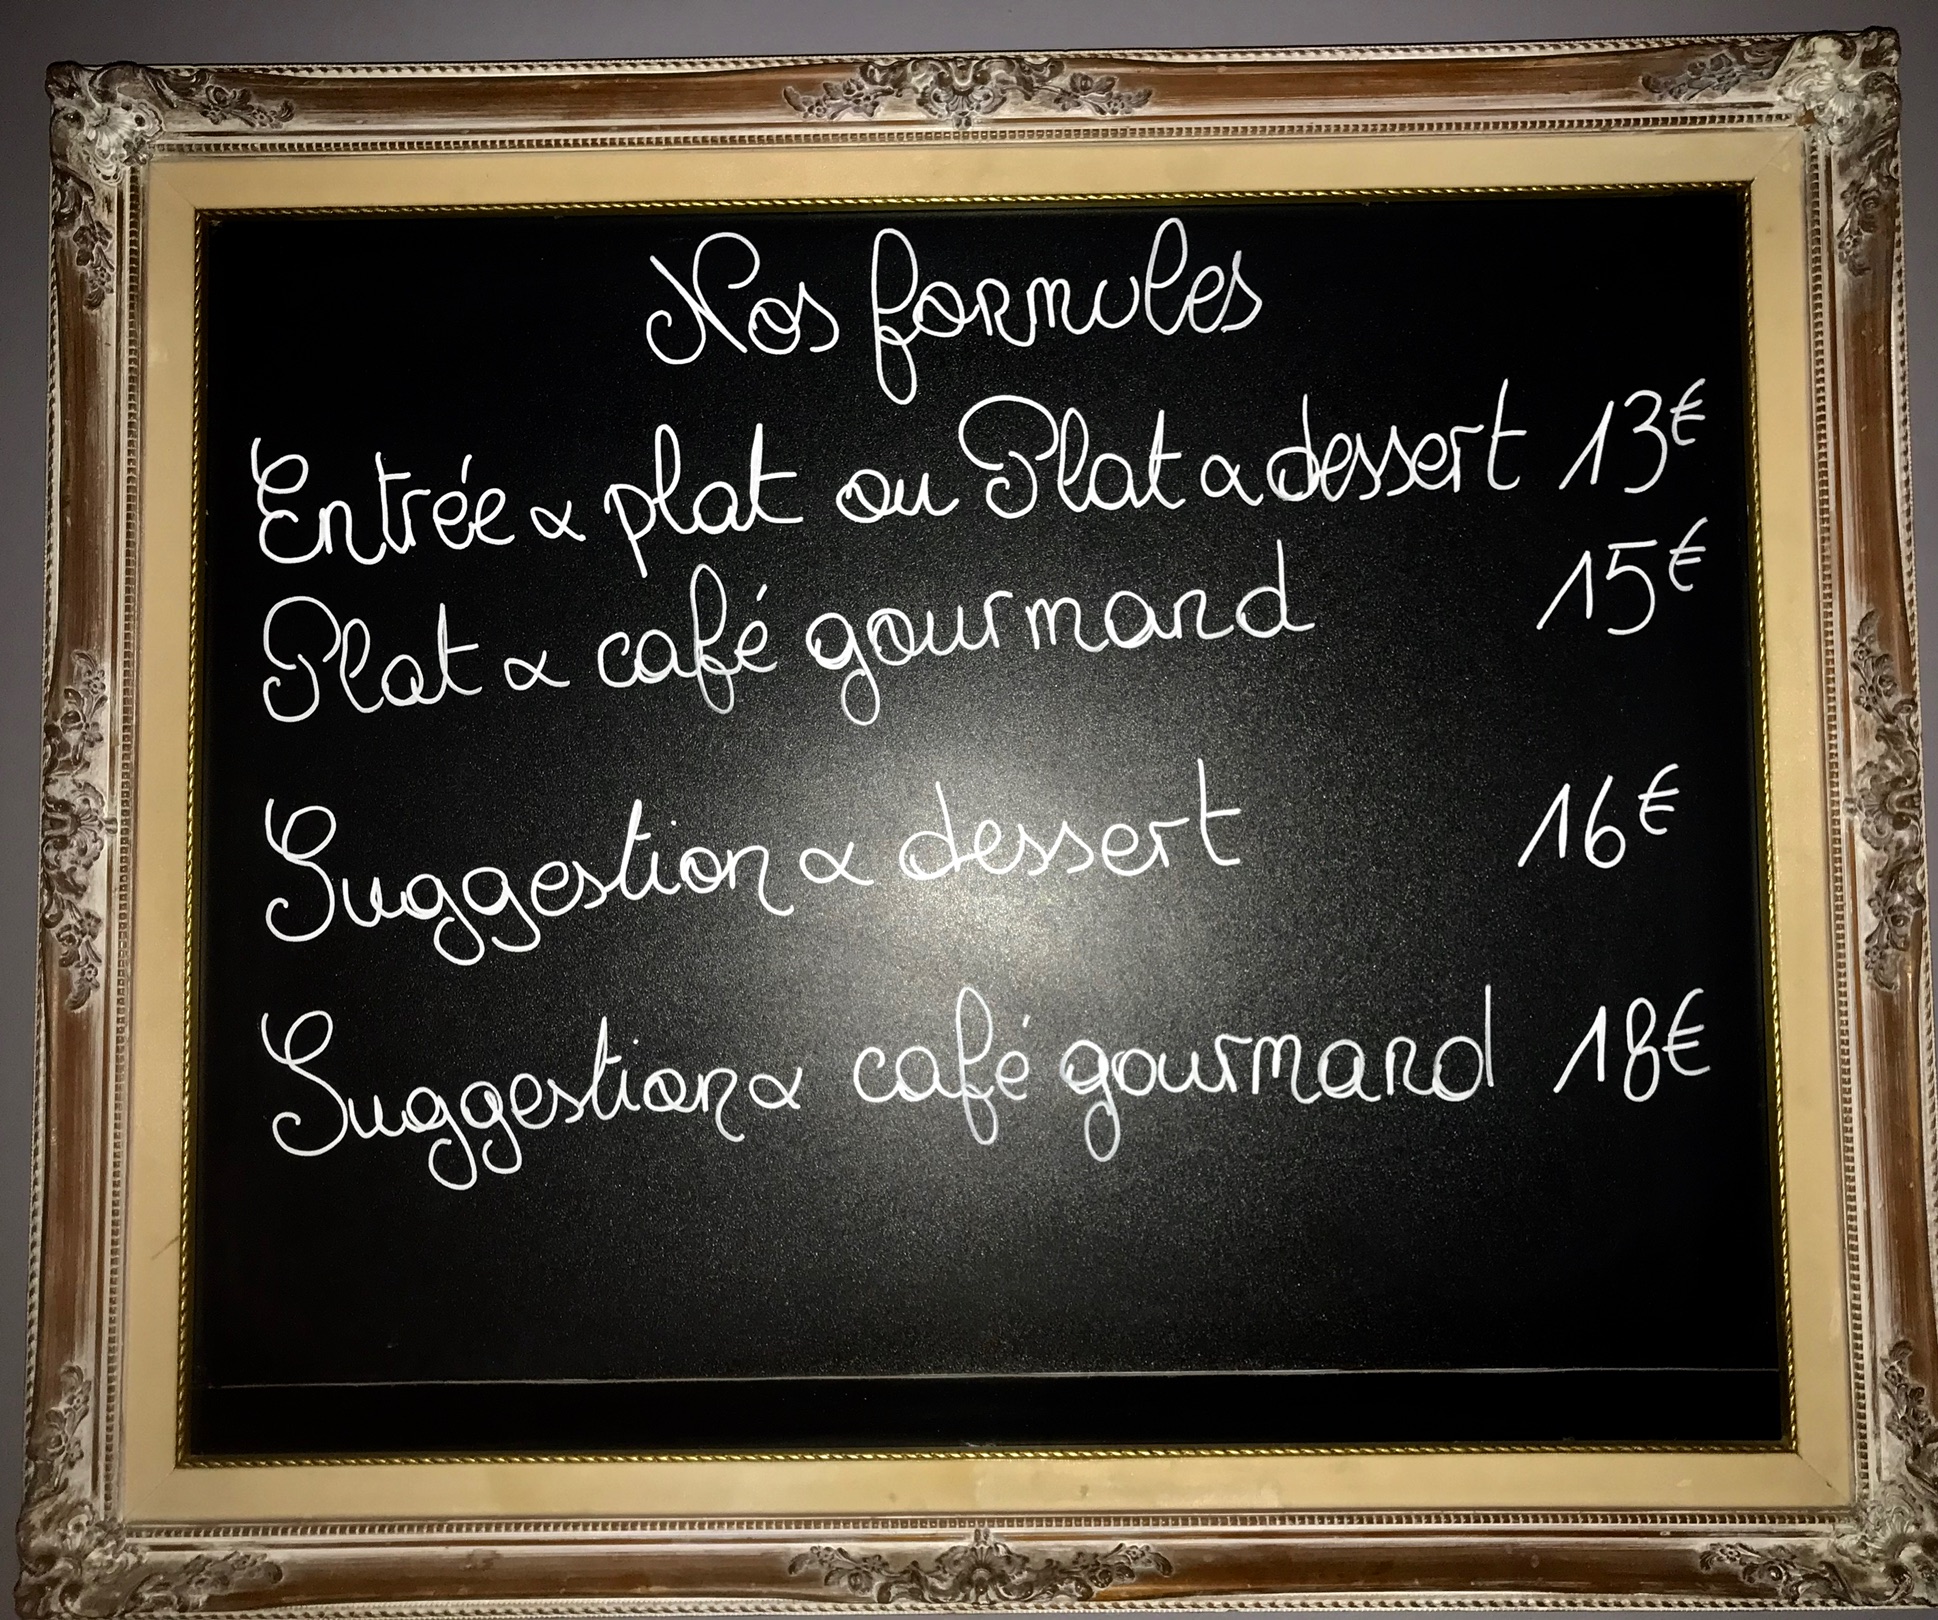 Nos formules
Entrée & plat ou Plat & dessert 13€
Plat & café gourmand 15€
Suggestion & dessert 16€
Suggestion & café gourmand 18€